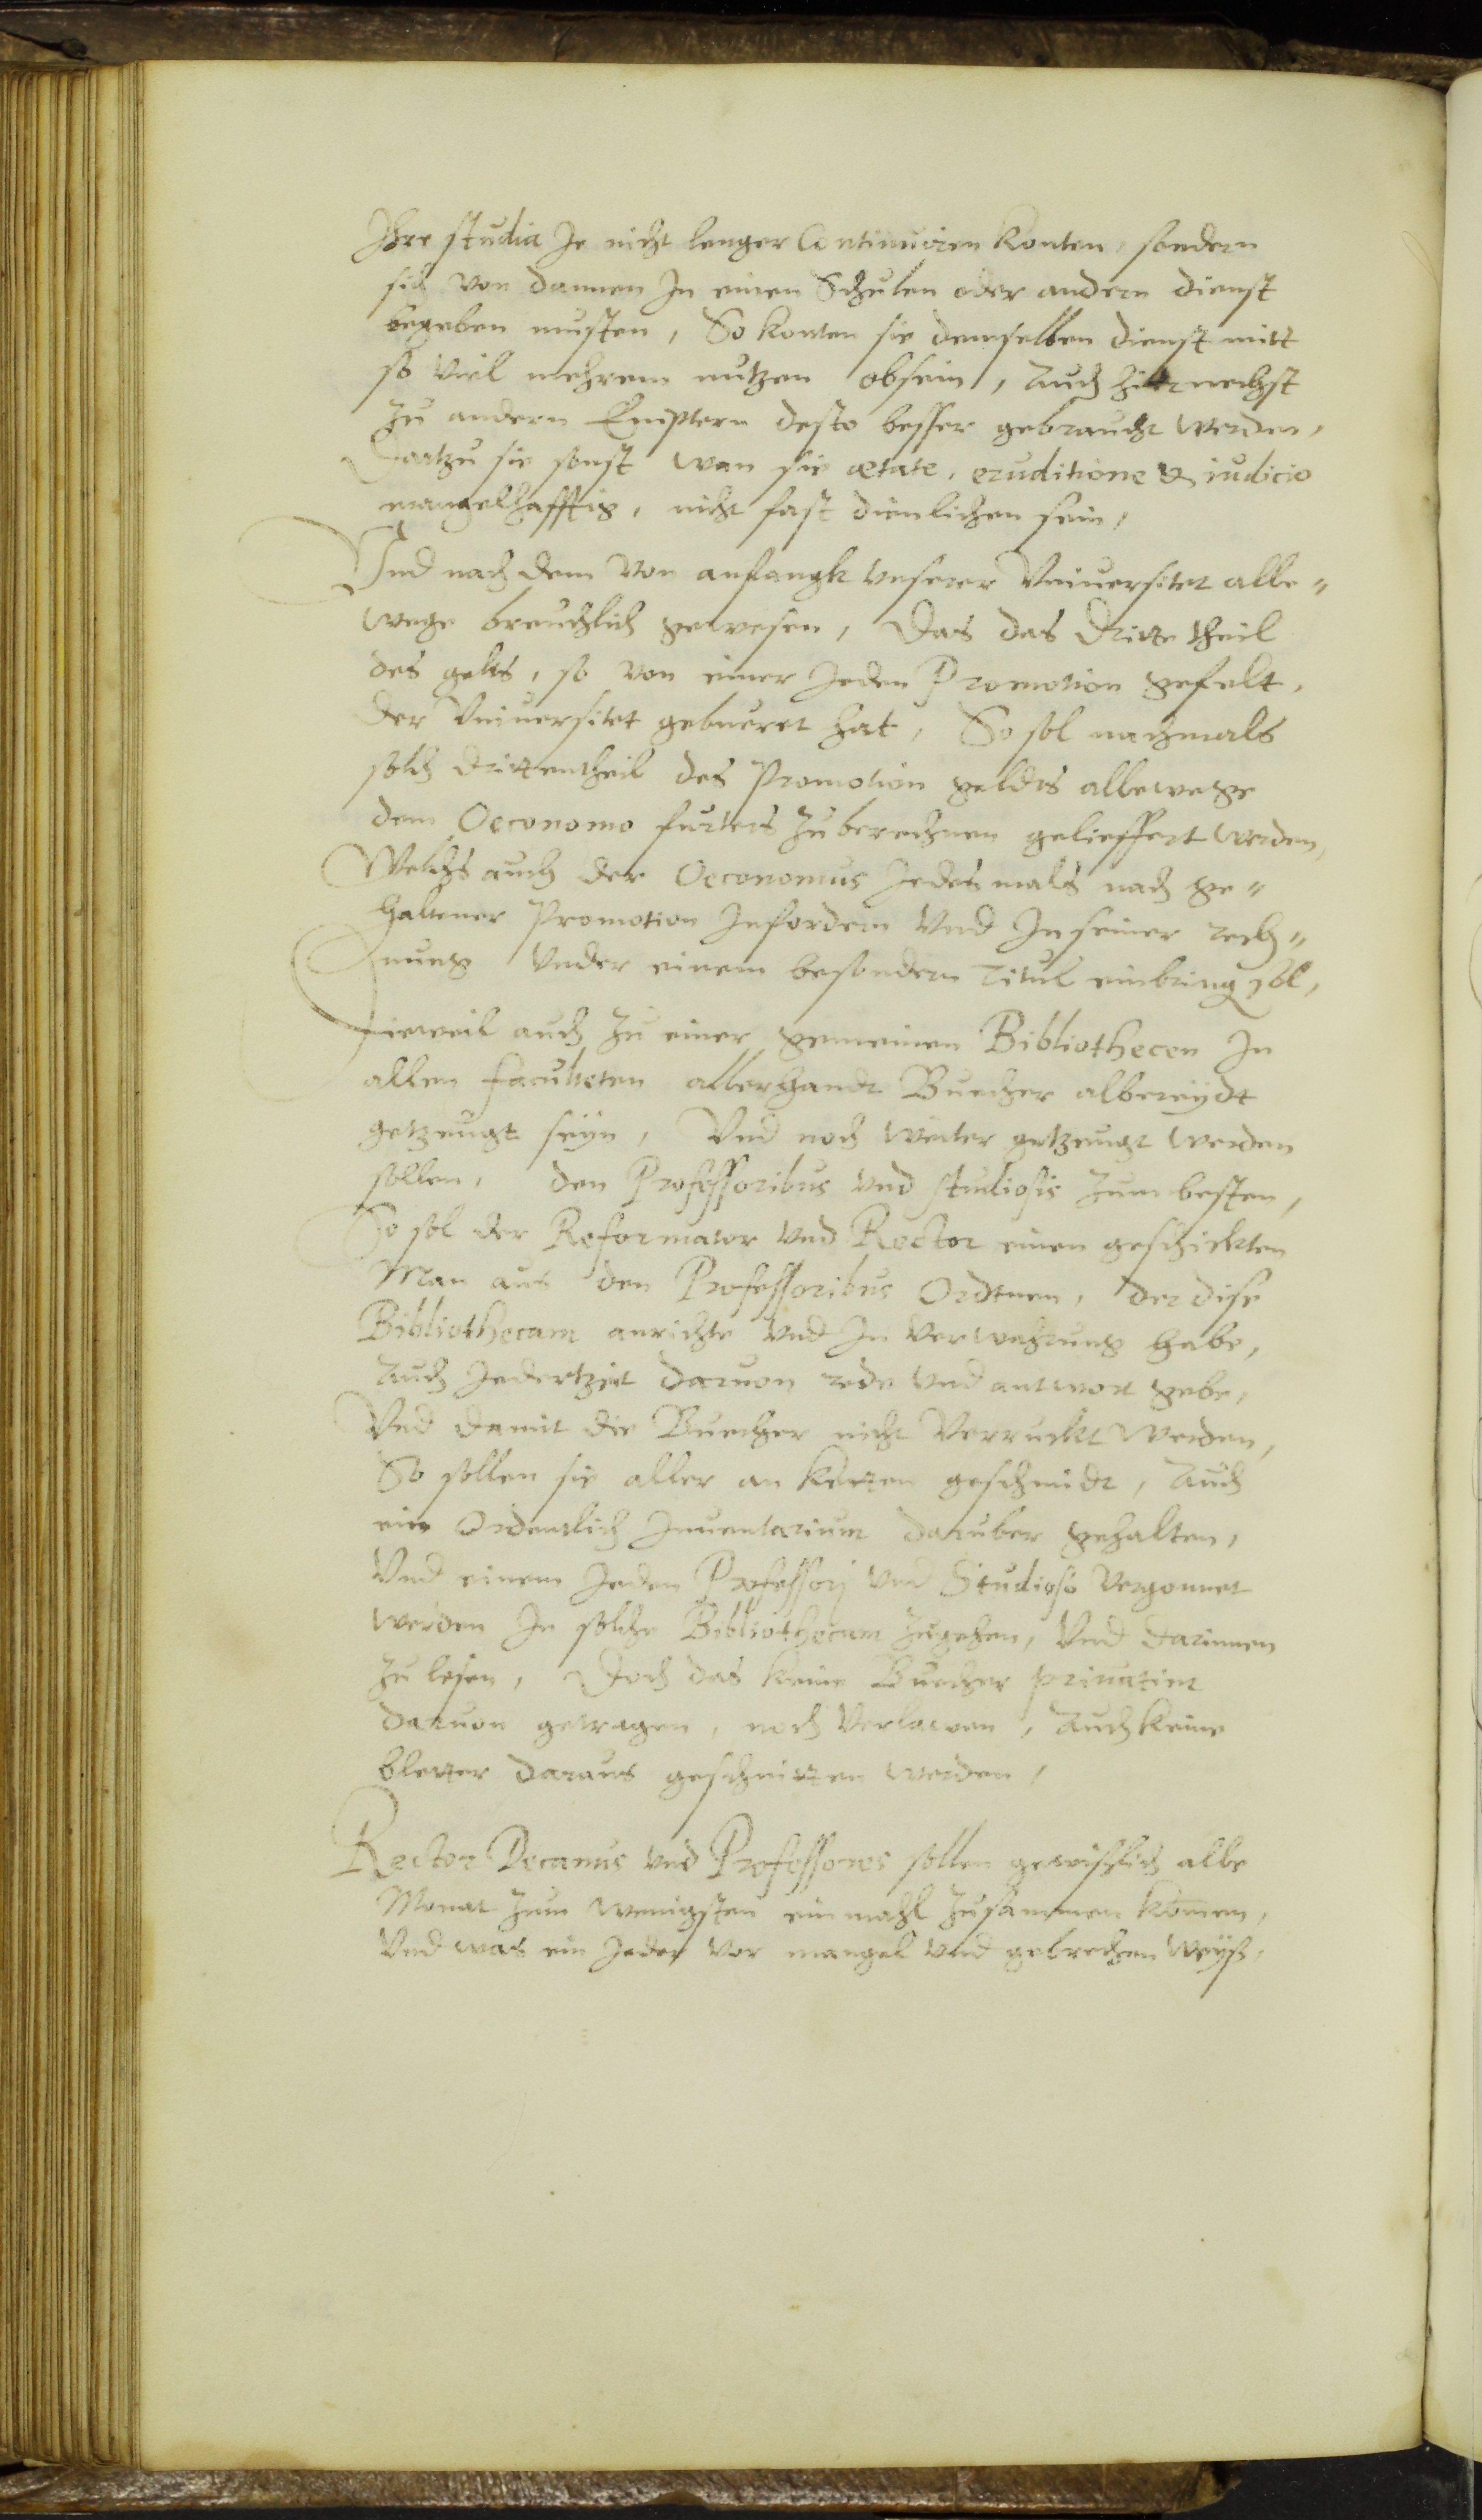 Ihre studia Je nicht lenger Continuiren konten, sondern
sich von dannen In einen Schulen oder andern dienst
begeben musten, So konten sie demselben dienst mitt
so viel mehrem nutzen obsein, Auch hiernechst
zu andern Emptern desto besser gebraucht werden,
Dartzu sie sonst wan sie ætate, eruditione & iudicio
mangelhafftig, nicht fast dienlichen sein,
Vnd nach dem von anfangk vnserer Vniuersitet alle"
wege breuchlich gewesen, Das das dritte theil
des gelts, so von einer Jeden Promotion gefelt,
der Vniuersitet gebueret hat, So sol nachmals
solch drittentheil des Promotion geldts allewege
dem Oeconomo furters zuberechnen gelieffert werden,
Welchs auch der Oeconomus Jedesmals nach ge"
haltener Promotion Infordern vnd In seiner rech"
nung vnder einem besondern Titul einbring sol,
Dieweil auch zu einer gemeinen Bibliothecen In
allen faculteten allerhandt Buecher albereydt
getzeugt seyn, Vnd noch weiter getzeugt werden
sollen, den Professoribus vnd studiosis zum besten,
So sol der Reformator vnd Rector einen geschickten
Man aus den Professoribus Ordtnen, der dise
Bibliothecam anrichte vnd In verwahrung habe,
Auch Jedertzeit daruon rede vnd antwort gebe,
Vnd damit die Buecher nicht verruckt werden,
So sollen sie aller an ketten geschmidt, Auch
ein Ordentlich Inuentarium daruber gehalten,
Vnd einem Jeden Professorj vnd Studioso vergonnet
werden In solche Bibliothecam zugehen, Vnd darinnen
zu lesen, Doch das keine Buecher priuatim
daruon getragen, noch verlawen, Auch keine
bletter daraus geschnitten werden,
Rector Decanus vnd Professores sollen gewißlich alle
Monat zum wenigsten ein mahl zusammen komen,
Vnd was ein Jeder vor mangel vnd gebrechen weyß,